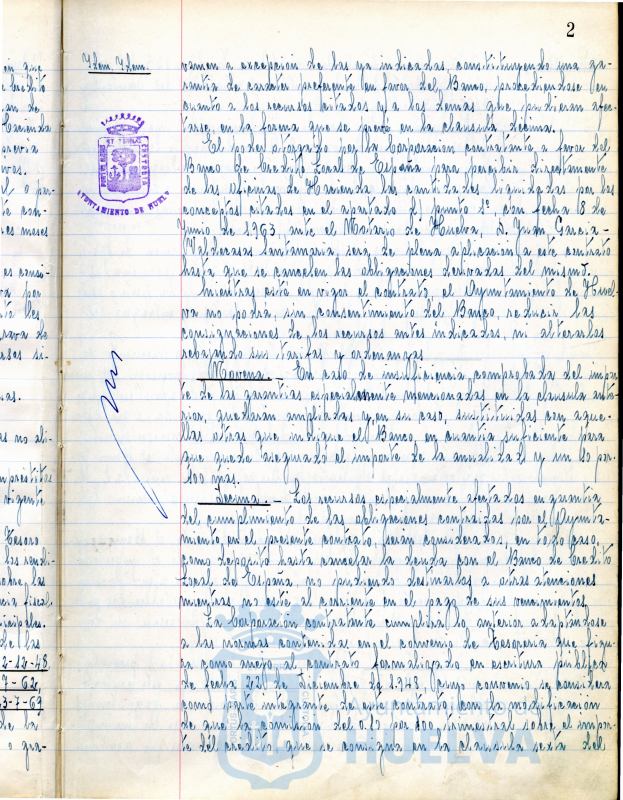 2
Idem. Idem.
AYUNTAMIENTO DE HUELVA
vamen a excepción de las ya indicadas, constituyendo una ga-
rantía de carácter preferente en favor del Banco, procediéndose en
cuanto a los recursos citados y a los demás que, pudieran afec-
tarse, en la forma que se prevé en la cláusula décima.
El poder otorgado por la Corporación contratante a favor del
Banco de Crédito Local de España para percibir directamente
de las Oficinas de Hacienda las cantidades liquidadas por los
conceptos citados en el apartado f) punto 1º, con fecha 18 de
Junio de 1963, ante el Notario de Huelva, D. Juan García-
Valdecasas Santamaria, será de plena aplicación a este contrato
hasta que se cancelen las obligaciones derivadas del mismo.
Mientras esté en vigor el contrato, el Ayuntamiento de Huel-
va no podrá, sin consentimiento del Banco, reducir las
consignaciones de los recursos antes indicados, ni alterarlos
rebajando sus tarifas y ordenanzas.
Novena.- En caso de insuficiencia comprobada del impor-
te de las garantías especialmente mencionadas en la cláusula ante-
rior, quedarán ampliadas y, en su caso, sustituidas con aque-
llas otras que indique el Banco, en cuantía suficiente para
que quede asegurado el importe de la anualidad y un 10 por.
100 más.
Décima.- Los recursos especialmente afectados en garantía
del cumplimiento de las obligaciones contraídas por el Ayunta-
miento en el presente contrato, serán considerados, en todo caso,
como depósito hasta cancelar la deuda con el Banco de Crédito
Local de España, no pudiendo destinarlos a otras atenciones
mientras no esté al corriente en el pago de sus vencimientos.
La Corporación contratante cumplirá lo anterior adaptándose
a las normas contenidas en el convenio de Tesorería que figu-
ra como anejo al contrato formalizado en escritura pública
de fecha 22 de Diciembre de 1.948, cuyo convenio se considera
como parte integrante de este contrato, con la modificación
de que la comisión del 0.10 por 100 trimestral sobre el impor-
te del crédito, que se consigna en la cláusula sexta del
HUELVA